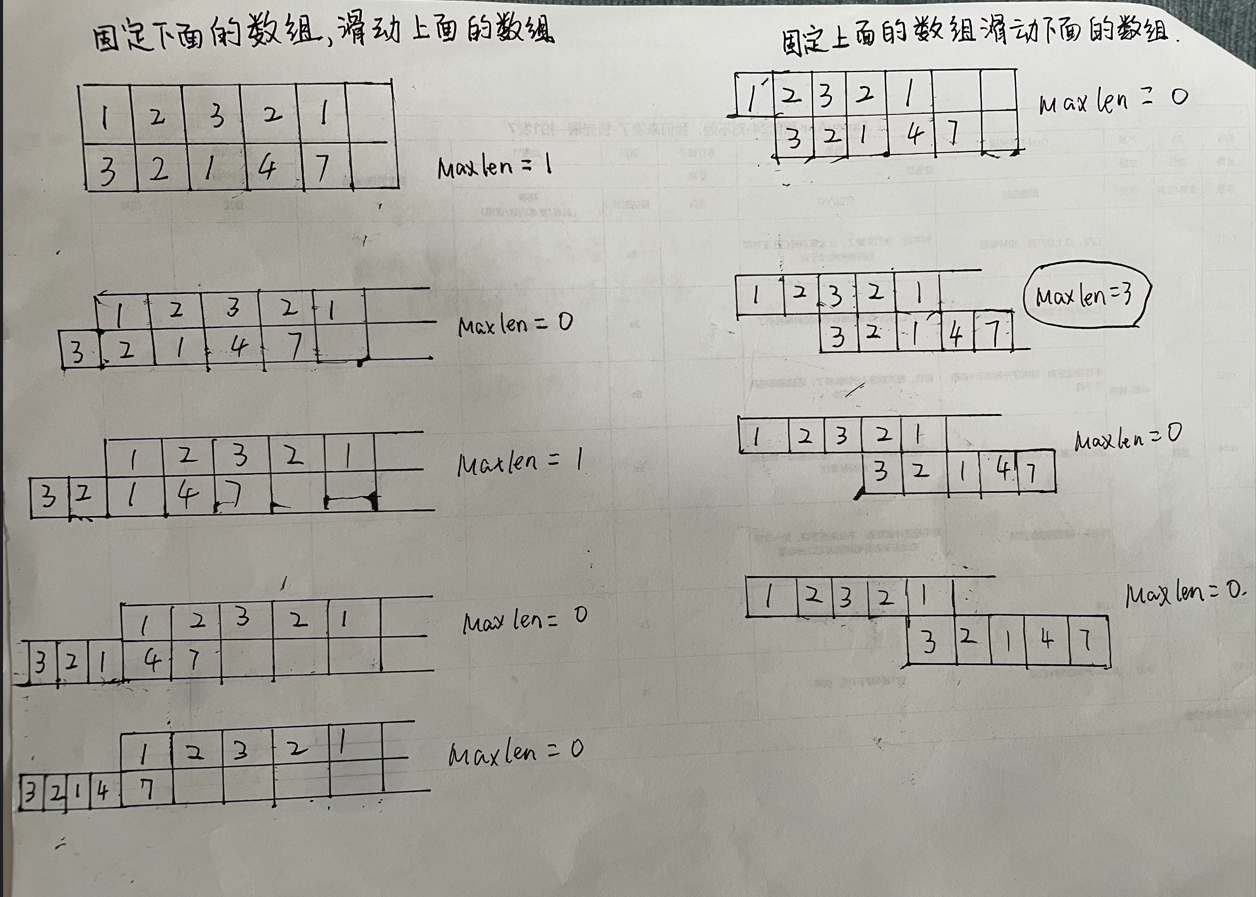 固定下面的数组,滑动上面的数组
1 2 3 2 1
3 2 1 4 7
Maxlen = 1
1 2 3 2 1
3 2 1 4 7
Maxlen = 0
1 2 3 2 1
3 2 1 4 7
Maxlen = 1
1 2 3 2 1
3 2 1 4 7
Maxlen = 0
1 2 3 2 1
3 2 1 4 7
Maxlen = 0
固定上面的数组滑动下面的数组.
1 2 3 2 1
3 2 1 4 7
Maxlen = 0
1 2 3 2 1
3 2 1 4 7
Maxlen=3
1 2 3 2 1
3 2 1 4 7
Maxlen=0
1 2 3 2 1
3 2 1 4 7
Maxlen= 0.